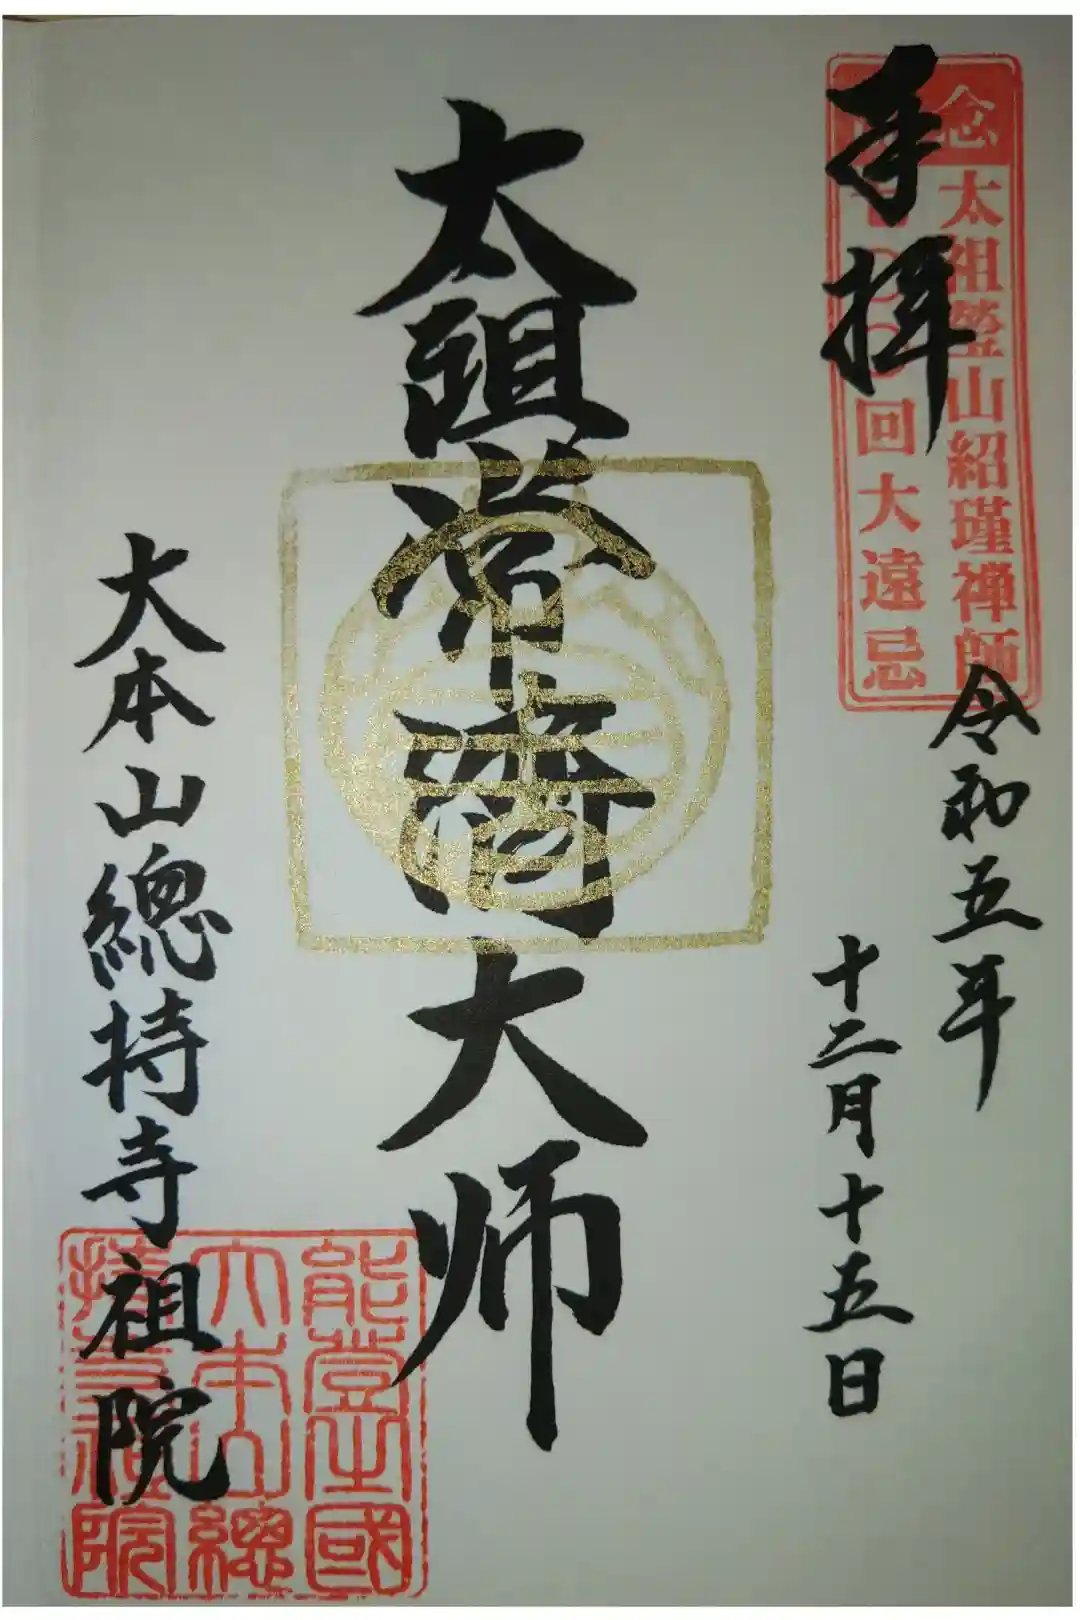 奉拝
念
太祖瑩山紹瑾禅師
七〇〇回大遠忌
令和五年
十二月十五日
太祖常済大师
能登国
大本山總
持寺祖院
大本山總持寺祖院